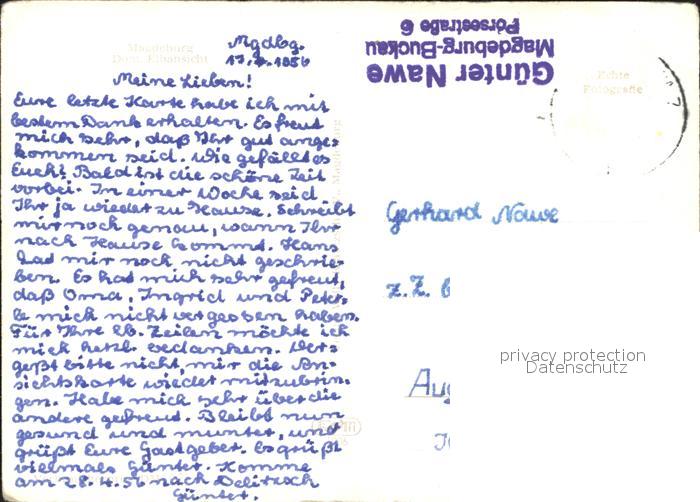 Magdeburg
Dom, Elbansicht
Mgdbg.
17.4.1956
Meine Lieben!
Eure letzte Karte habe ich mit
bestem Dank erhalten. Es freut
mich sehr, daß Ihr gut ange-
kommen seid. Wie gefällt es
Euch? Bald ist die schöne Zeit
vorbei. In einer Woche seid
Ihr ja wieder zu Hause. Schreibt
mir noch genau, wann Ihr
nach Hause kommt. Hans
hat mir noch nicht geschrie-
ben. Es hat mich sehr gefreut,
daß Oma, Ingrid und Peter-
le mich nicht vergessen haben.
Für Ihre lb. Zeilen möchte ich
mich herzl. bedanken. Ver-
geßt bitte nicht, mir die An-
sichtskarte wieder mitzubrin-
gen. Habe mich sehr über die
andere gefreut. Bleibt nun
gesund und munter, und
grüßt Eure Gastgeber. Es grüßt
vielmals Günter. Komme
am 28.4.56 nach Delitzsch
Günter.
Günter Nawe
Magdeburg-Buckau
Pörsestraße 6
Echte
Fotografie
Gerhard Nawe
z.Z. b
Aug
privacy protection
Datenschutz